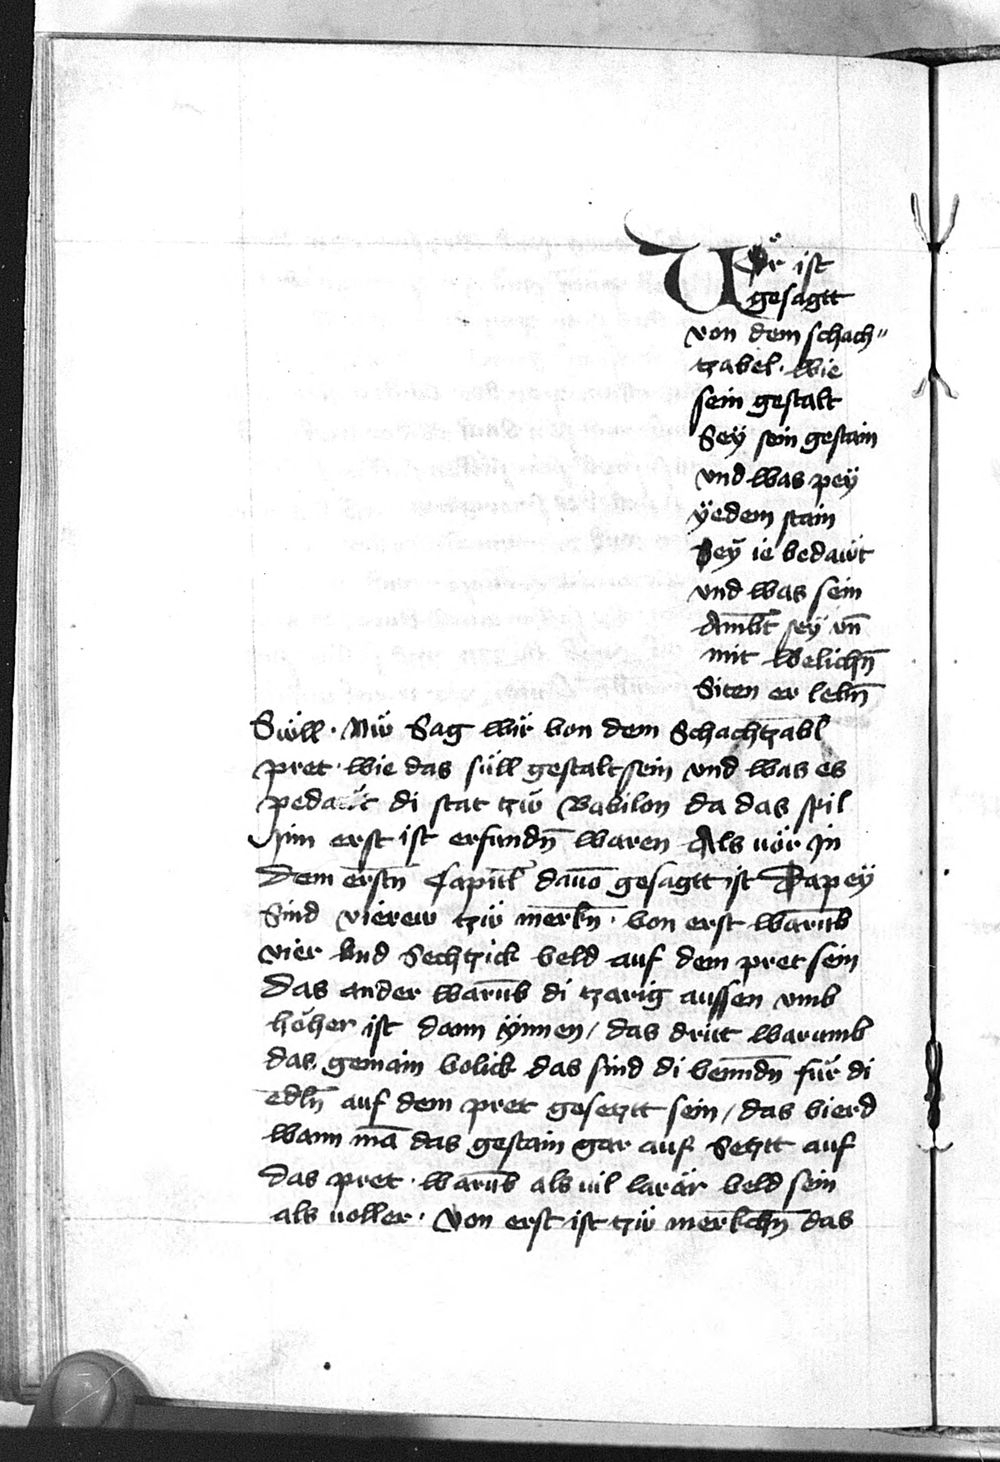 Vör ist
gesagtt
von dem schach"
tzabel · wie
sein gestalt
Seÿ sein gestain
vnd was peÿ
ÿedem stain
Seÿ ie bedawt
vnd was sein
Ambt̄ seÿ vn̄
mit welichn̄
Siten er lebn̄
Süll · Nw̋ Sag wir von dem Schachtzabl
pret · wie das süll gestalt sein vnd was es
pedawt di stat tzw̋ Babilon da das spil
Jnn erst ist erfundn̄ waren Als uör Jn
Dem erstn̄ Capitl dauo̅ gesagtt ist Dapeÿ
Sind vierew tzw̋ merkn̄ · von erst warūb
vier vnd Sechtzick veld auf dem pret sein
Das ander warūb di tzarig aussen vmb
höher ist dann ÿnnen / das dritt warumb
das gemain volick das sind di venndn̄ für di
edln̄ auf dem pret gesetztt sein / das vierd
wann mā das gestain gar auf Setztt auf
das pret · warūb als uil larär veld sein
als uoller · Von erst ist tzw̋ merkchn̄ das